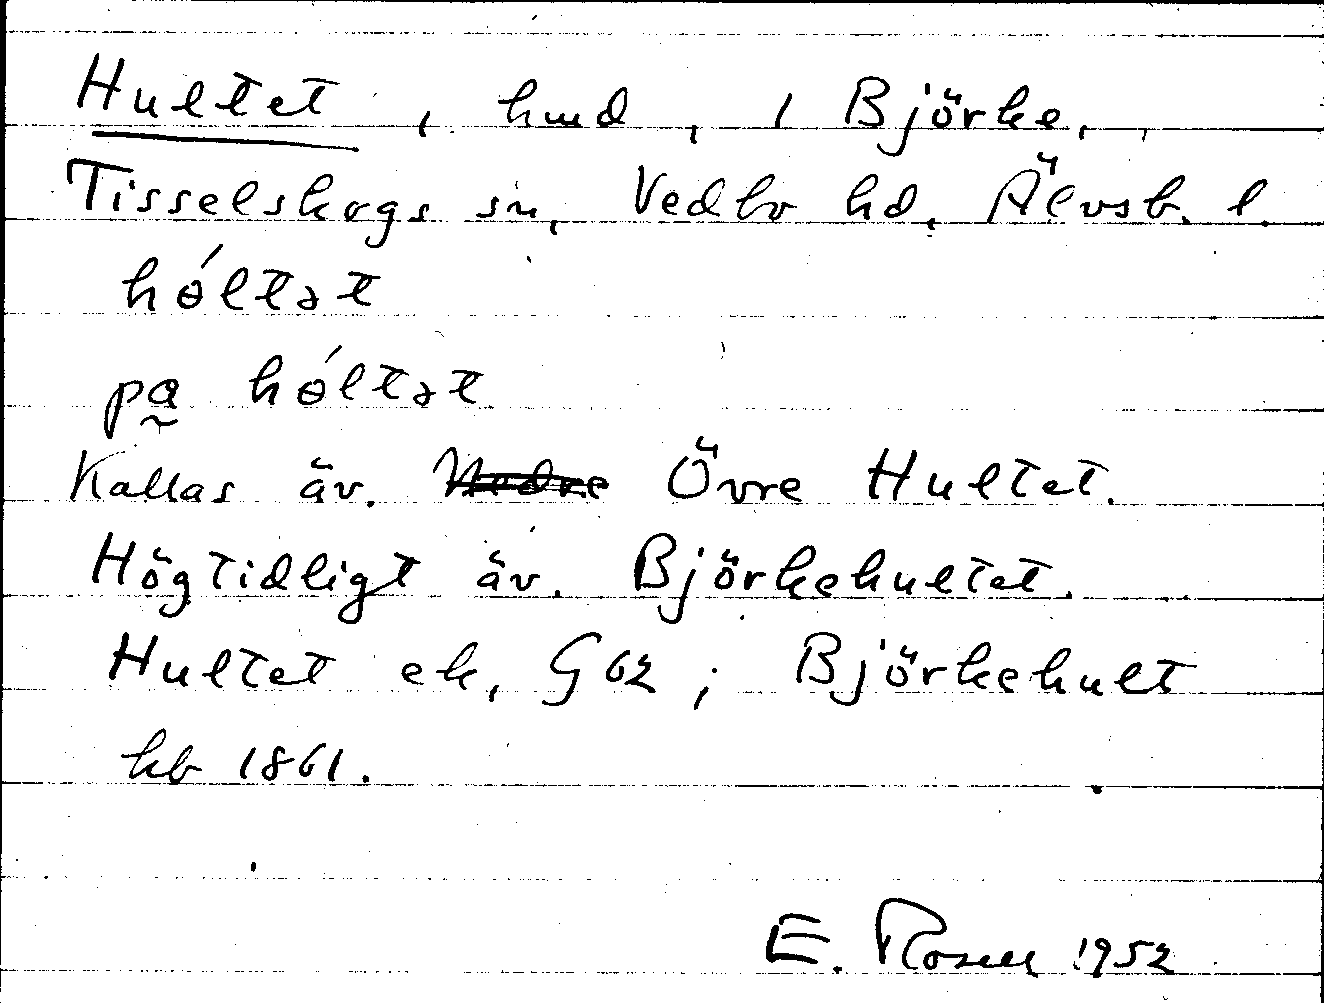 Hultet, hmd, i Björke,
Tisselskogs sn, Vedbo hd, Älvsb. l.
hɵ́ltət
pa hɵ́ltət
Kallas äv. Nedre Övre Hultet.
Högtidligt äv. Björkehultet.
Hultet ek, G62; Björkehult
hb 1861.
E. Rosell 1952